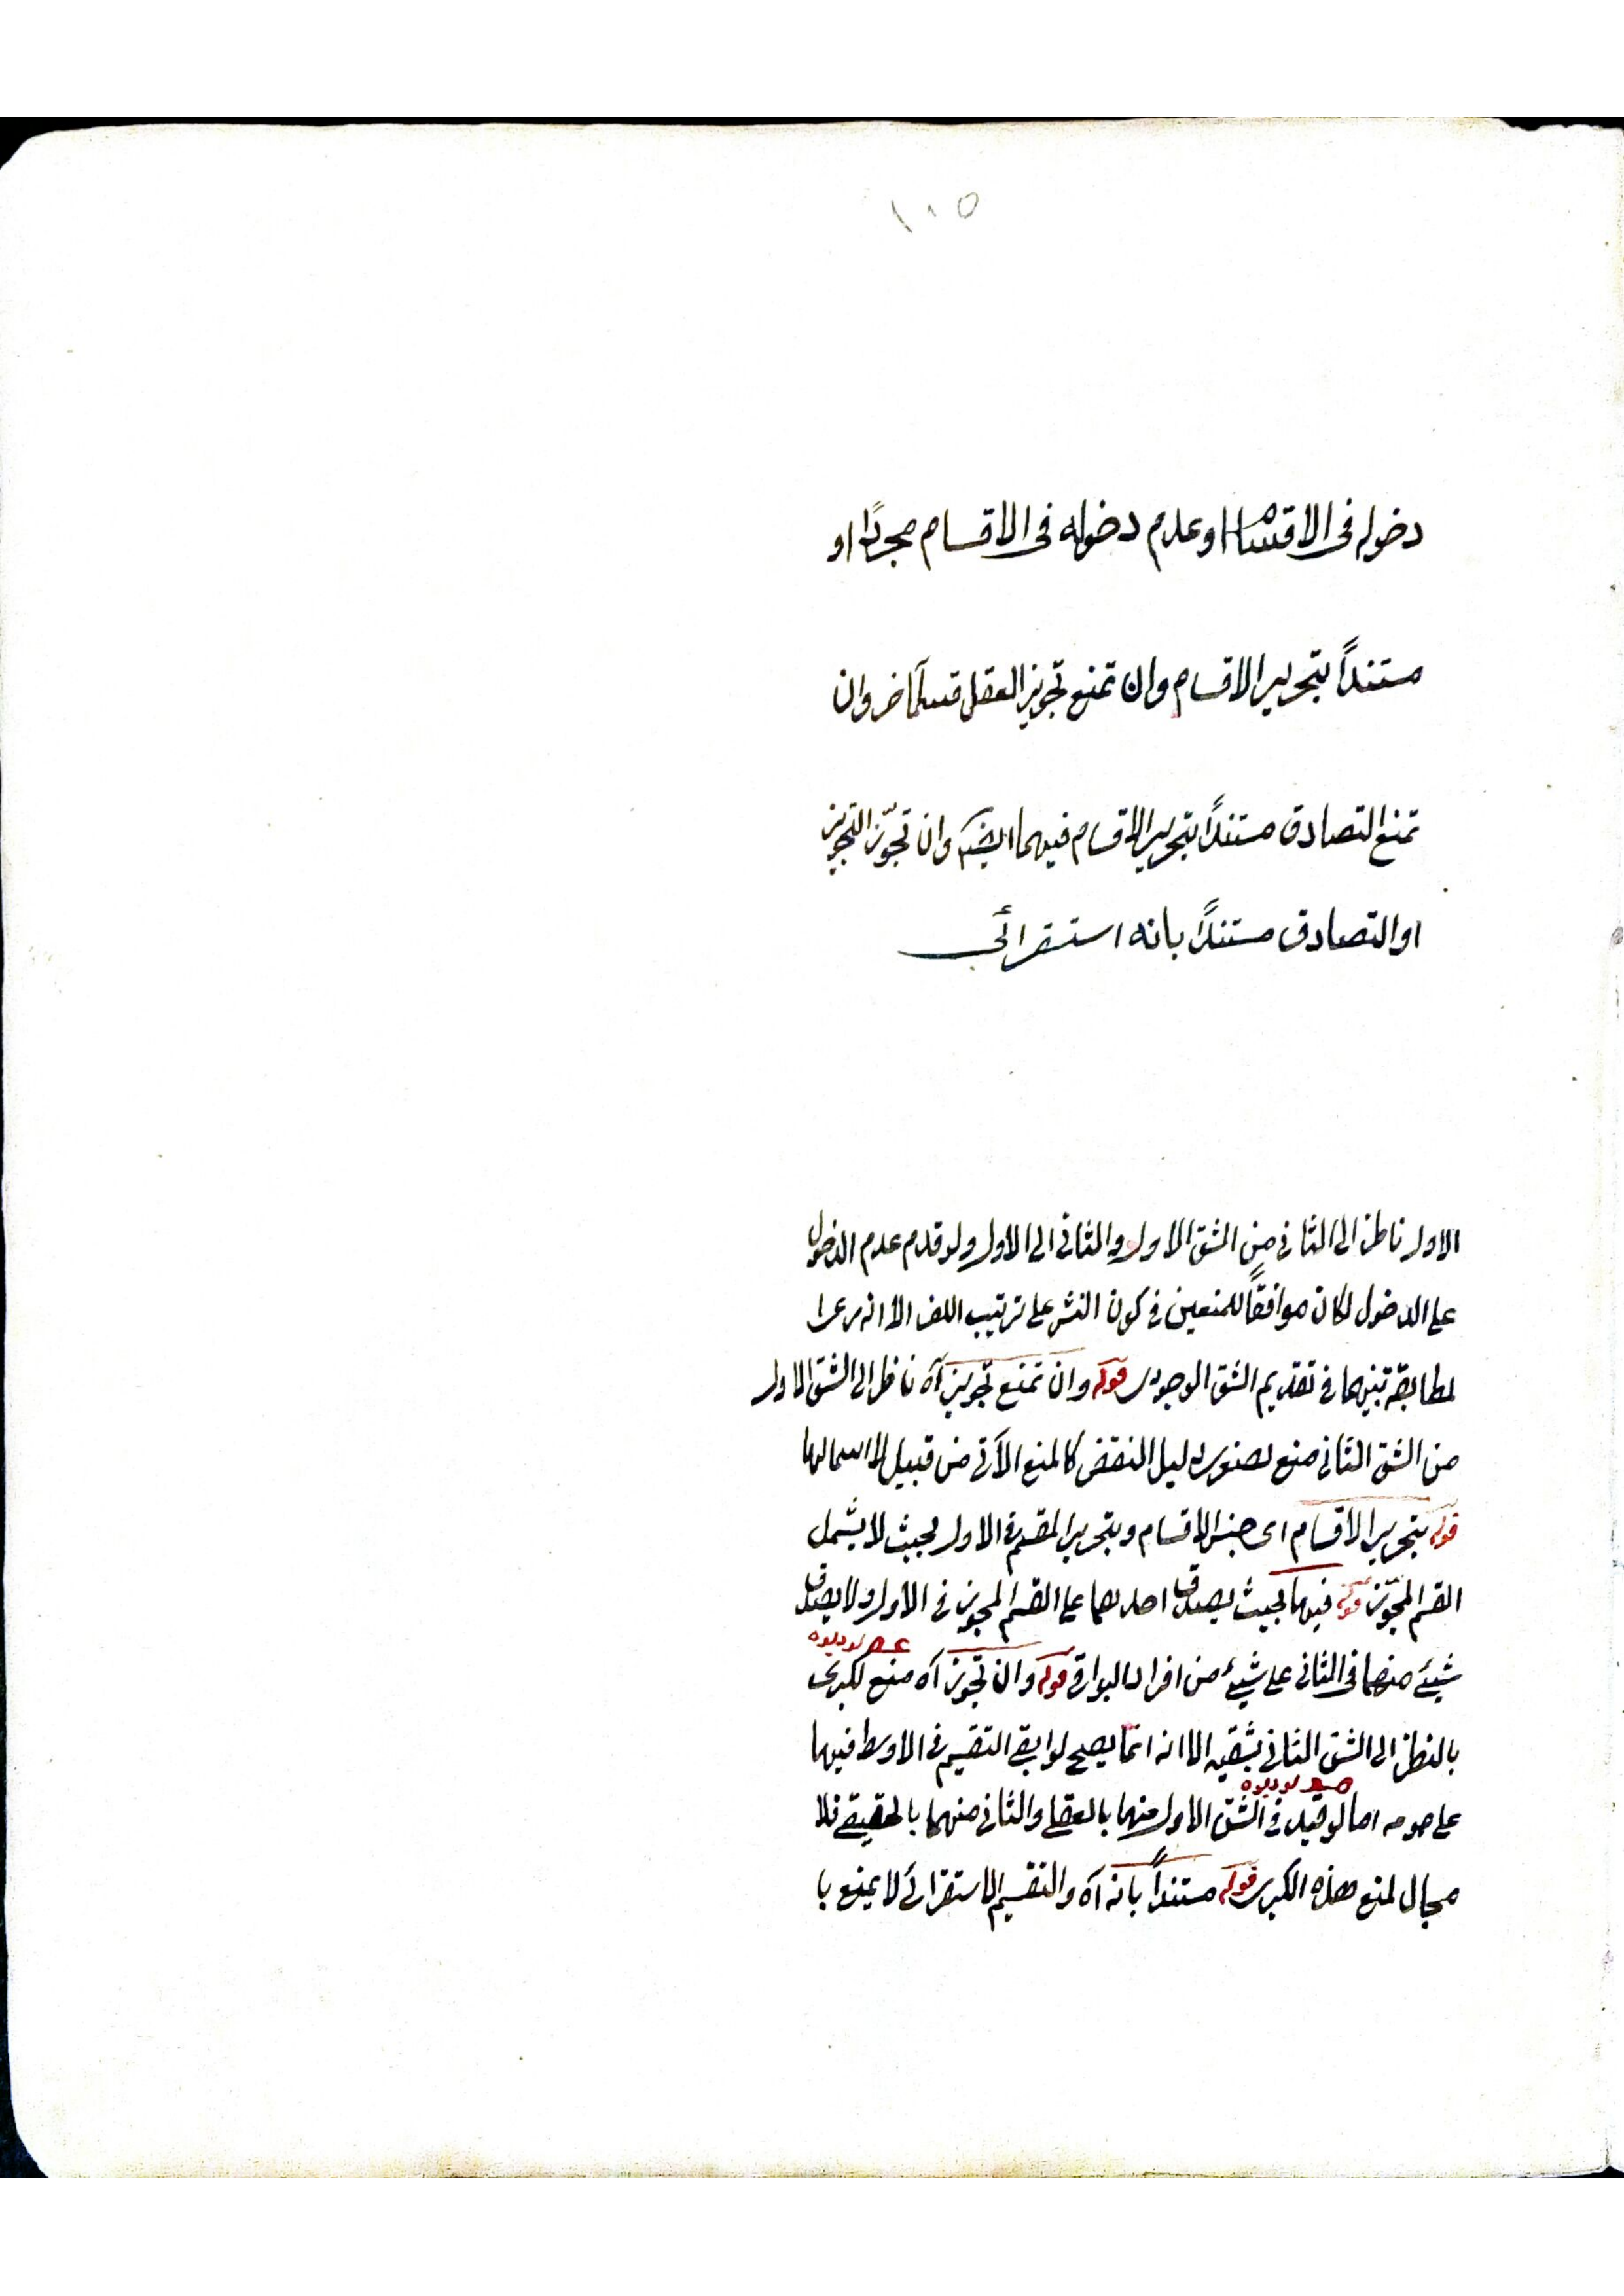 ١٠٥
دخوله فى الاقسام او عدم دخوله فى الاقسام مجردًا او
مستندًا بتحرير الاقسام وان تمنع تجويز العقل قسمًا آخر وان
تمنع التصادق مستندًا بتحرير الاقسام فيهما ايضًا وان تجوّز التجويز
او التصادق مستندًا بانه استقرائى
الاول ناظر الى الثانى من الشق الاول والثانى الى الاول ولو قدم عدم الدخول
على الدخول لكان موافقًا للمنعين فى كون النشر على ترتيب اللف الا انه
لمطابقة بينهما فى تقديم الشق الوجودى قوله وان تمنع تجويز آه ناظر الى الشق الاول
من الشق الثانى منع لصغرى دليل النقض كالمنع الآتى من قبيل
قوله بتحرير الاقسام اى جنس الاقسام وبتحرير المقسم فى الاول بحيث لا يشمل
القسم المجوّز قوله فيهما بحيث يصدق احدهما على القسم المجوز فى الاول ولا يصدق
شيئ منهما فى الثانى على شيئ من افراد البواقى قوله وان تجوز آه منع لكبرى
بالنظر الى الشق الثانى بشقيه الا انه انما يصح لو ابقى التقسيم فى الاوسط فيهما
على عمومه اما لو قيد فى الشق الاول منهما بالعقلى والثانى منهما بالحقيقى فلا
مجال لمنع هذه الكبرى قوله مستندًا بانه آه والتقسيم الاستقرائى لا يمنع با